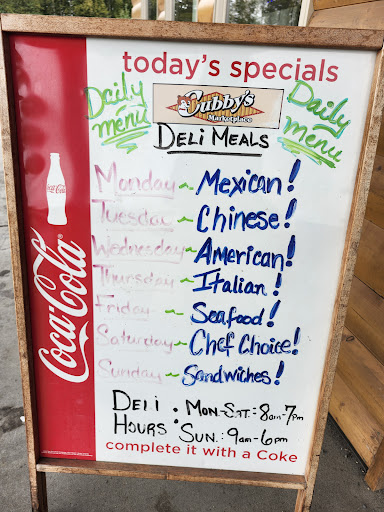 today's specials
Daily menu
Cubby's
Marketplace
Daily menu
DELI MEALS
Monday ~ Mexican!
Tuesday ~ Chinese!
Wednesday ~ American!
Thursday ~ Italian!
Friday ~ Seafood!
Saturday ~ Chef Choice!
Sunday ~ Sandwiches!
DELI • MON-SAT: 8am-7pm
HOURS • SUN: 9am-6pm
complete it with a Coke
Coca-Cola
Coca-Cola